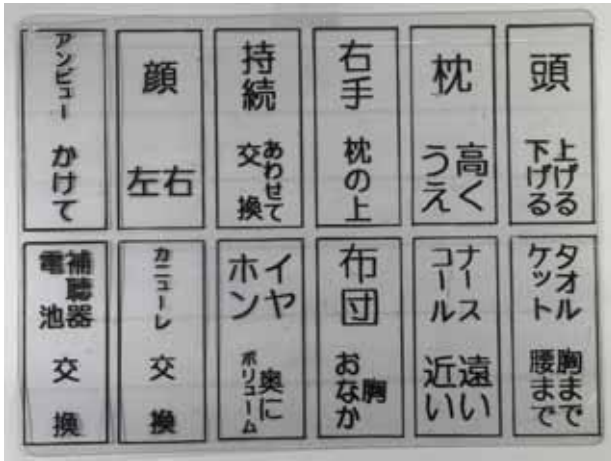 頭
上げる
下げる
枕
高く
うえ
右手
枕の上
持続
あわせて
交換
顔
左右
アンビュー
かけて
タオル
ケット
胸まで
腰まで
ナース
コール
遠い
近い
布団
胸
おなか
イヤ
ホン
奥に
ボリューム
カニューレ
交換
補聴器
電池
交換